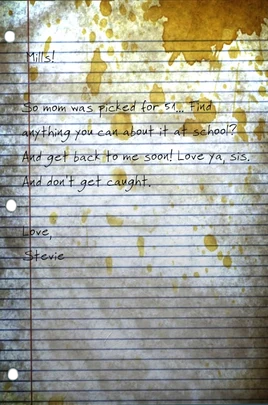 Mills!
So mom was picked for 51... Find
anything you can about it at school?
And get back to me soon! Love ya, sis.
And don't get caught.
Love,
Stevie